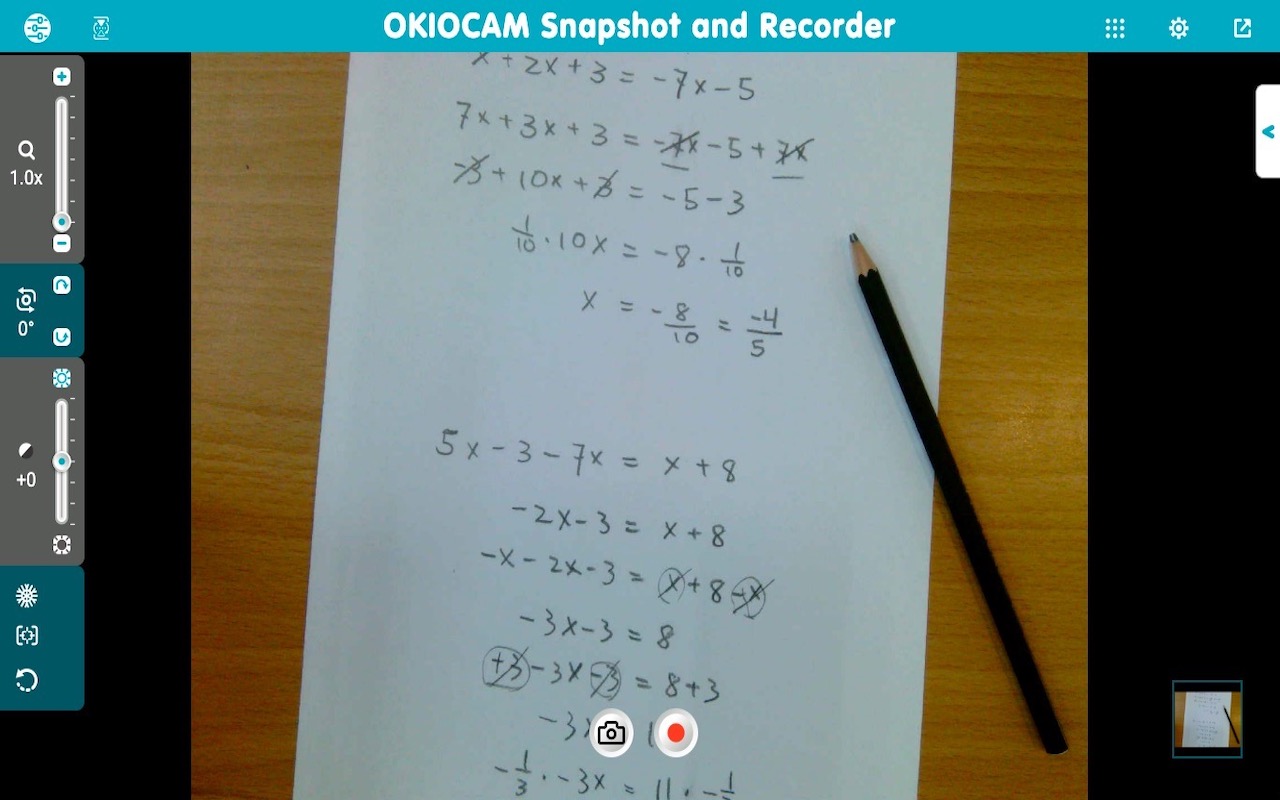 OKIOCAM Snapshot and Recorder
1.0x
0°
+0
x + 2x + 3 = -7x - 5
7x + 3x + 3 = -7x - 5 + 7x
-3 + 10x + 3 = -5 - 3
1/10 · 10x = -8 · 1/10
x = -8/10 = -4/5
5x - 3 - 7x = x + 8
-2x - 3 = x + 8
-x - 2x - 3 = x + 8 - x
-3x - 3 = 8
+3 - 3x - 3 = 8 + 3
-3x
-1/3 · -3x = 11 ·